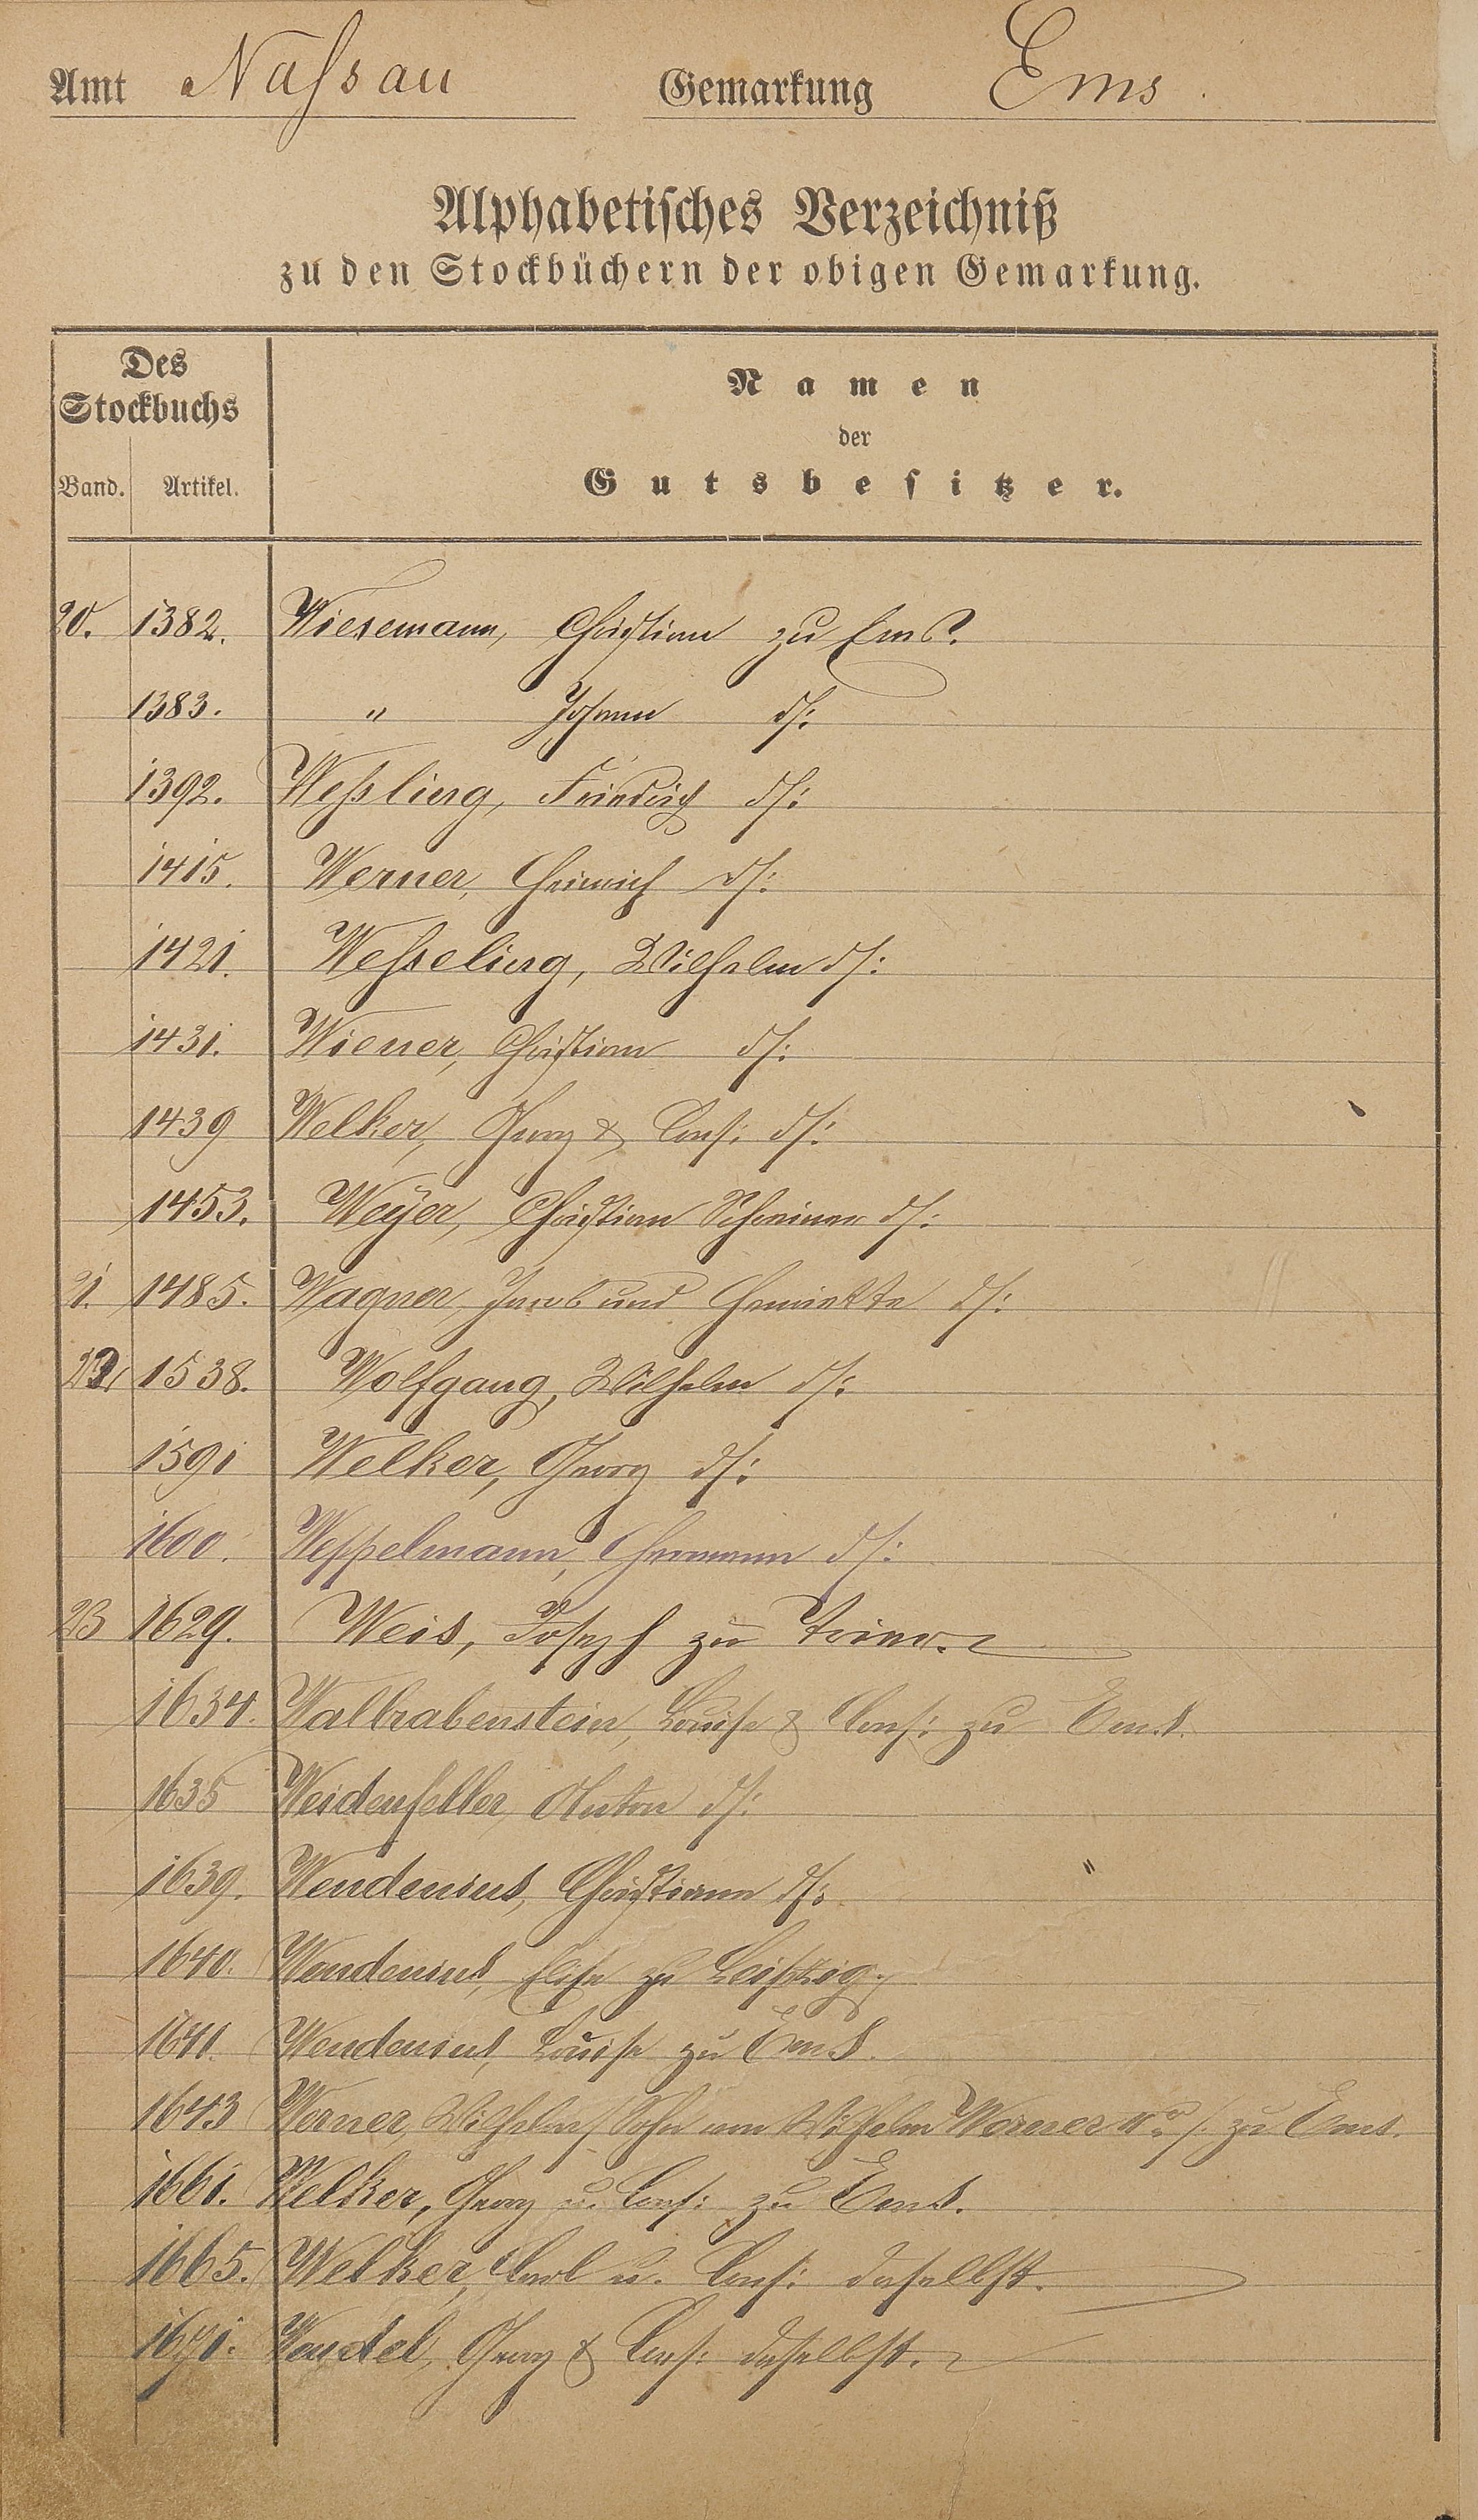 Amt Naſsau Gemarkung Ems.
Alphabetiſches Verzeichniß
zu den Stockbüchern der obigen Gemarkung.
Des
Stockbuchs
Band. Artikel.
Namen
der
Gutsbeſitzer.
20. 1382. Wiesemann, Christian zu Ems.
1383. " Johann ds:
1392. Weſsling, Friedrich ds:
1415. Werner, Heinrich ds:
1421. Weſseling, Wilhelm ds:
1431. Wiener, Christian ds:
1439 Welker, Georg & Cons: ds:
1453. Weÿer, Christian Schreiner ds:
21. 1485. Wagner, Jacob und Henriette ds:
22. 1538. Wolfgang, Wilhelm ds:
1591 Welker, Georg ds:
1600. Weppelmann, Hermann ds:
23 1629. Weis, Joseph zu Trier.
1634. Walbrabenstein, Louise & Cons: zu Ems.
1635 Weidenfeller, Anton ds:
1639. Wendenius, Christiane ds:
1640. Wendenius, Elise zu Leipzig.
1641. Wendenius, Louise zu Ems.
1643 Werner, Wilhelm /Sohn von Wilhelm Werner IIr /. zu Ems.
1661. Welker, Georg u. Cons: zu Ems.
1665. Welker, Carl u. Cons: daselbst.
1671. Wendel, Georg & Cons: daselbst.